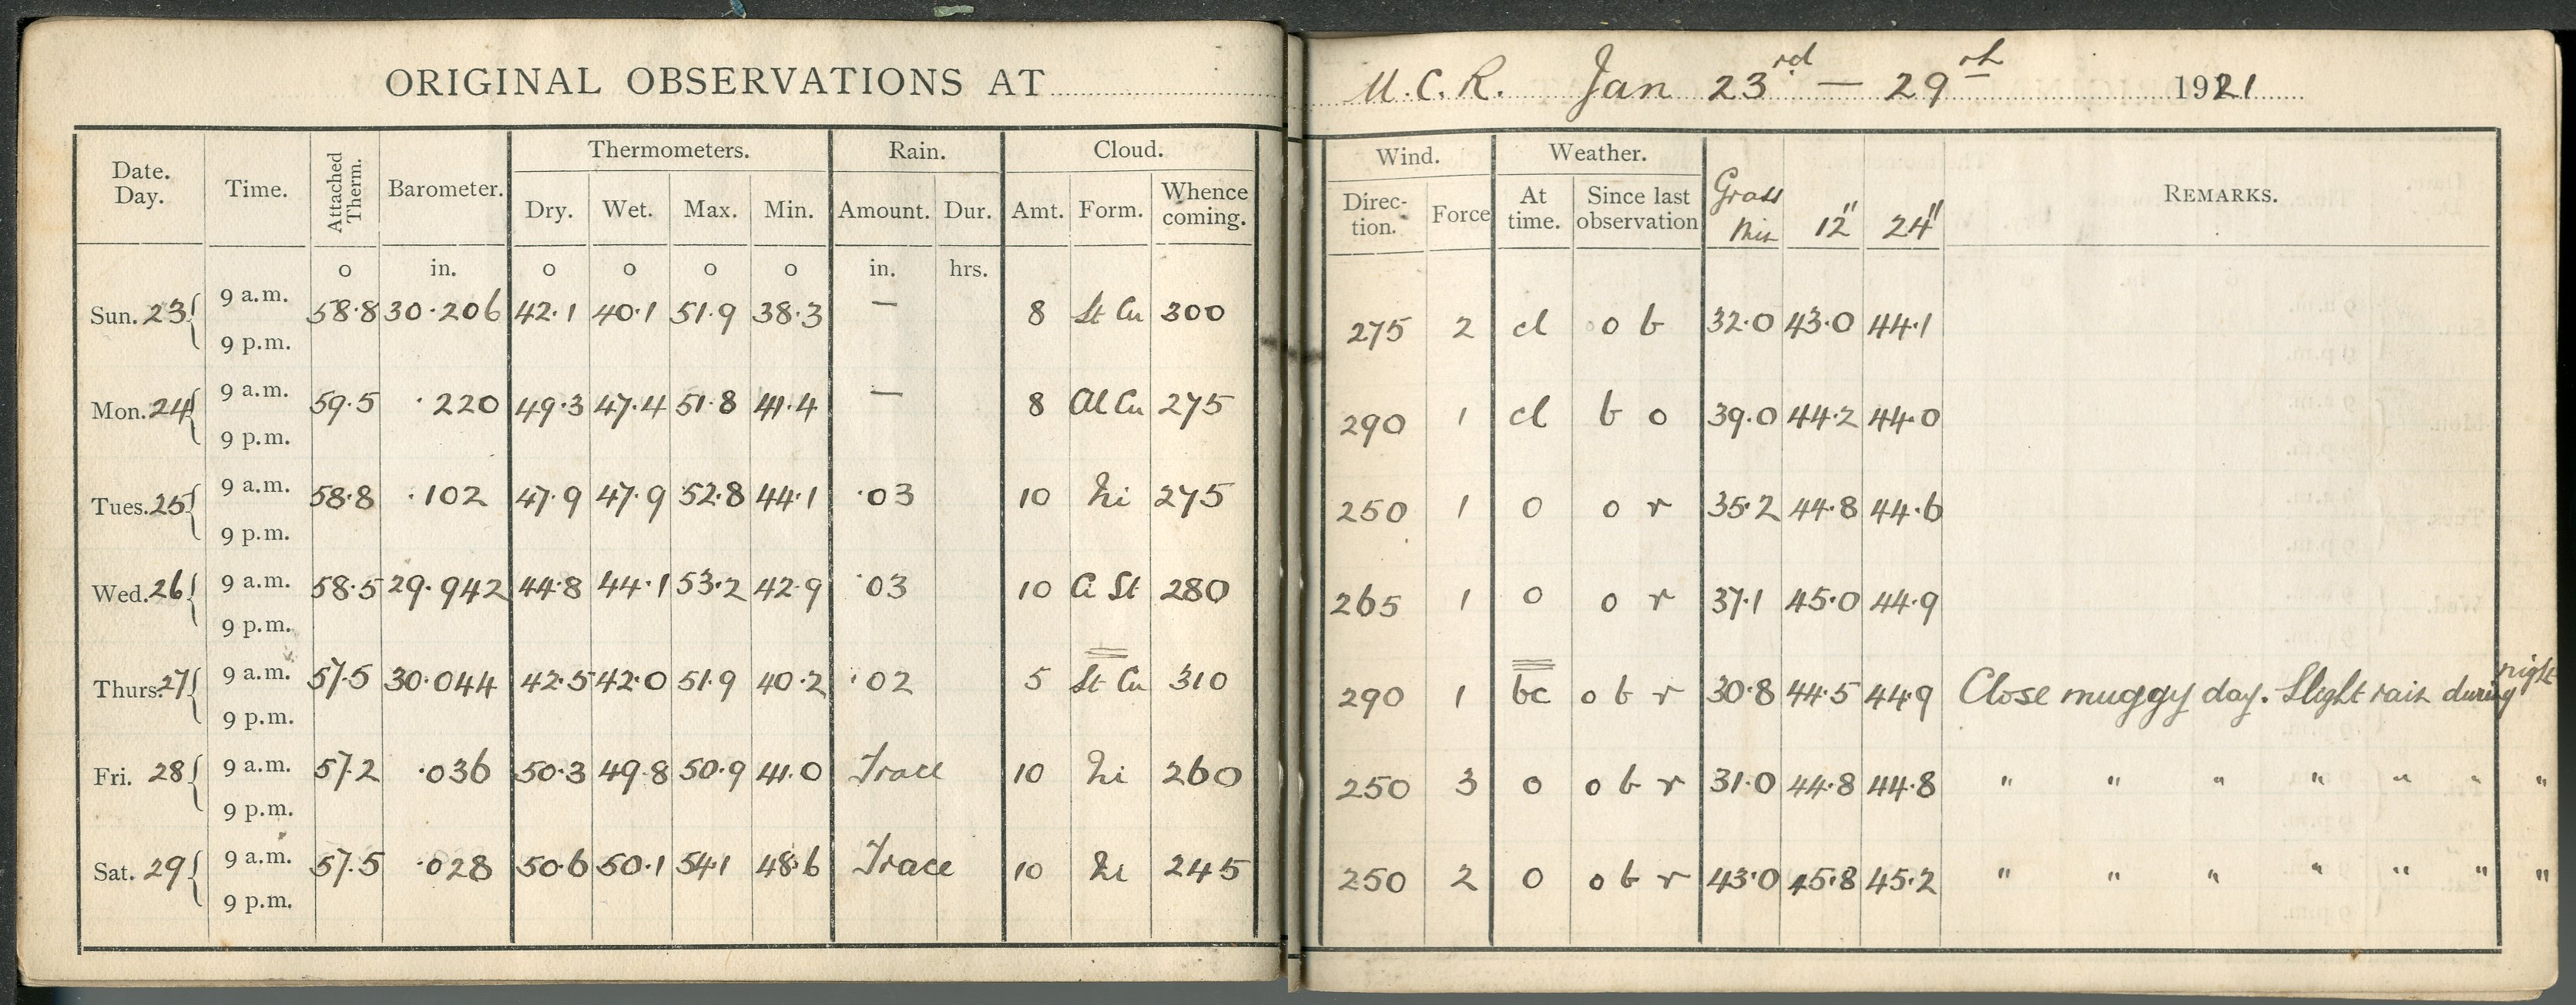 ORIGINAL OBSERVATIONS AT U.C.R. Jan 23rd — 29th 1921
Date. Day. Time. Attached Therm. Barometer. Thermometers. Rain. Cloud. Wind. Weather. Grass Min 12" 24" REMARKS.
Dry. Wet. Max. Min. Amount. Dur. Amt. Form. Whence coming. Direc- tion. Force At time. Since last observation
o in. o o o o in. hrs.
Sun. 23 9 a.m. 58.8 30.206 42.1 40.1 51.9 38.3 — 8 St Cu 300 275 2 cl o b 32.0 43.0 44.1
9 p.m.
Mon. 24 9 a.m. 59.5 .220 49.3 47.4 51.8 41.4 — 8 Al Cu 275 290 1 cl b o 39.0 44.2 44.0
9 p.m.
Tues. 25 9 a.m. 58.8 .102 47.9 47.9 52.8 44.1 .03 10 Ni 275 250 1 o o r 35.2 44.8 44.6
9 p.m.
Wed. 26 9 a.m. 58.5 29.942 44.8 44.1 53.2 42.9 .03 10 Ci St 280 265 1 o o r 37.1 45.0 44.9
9 p.m.
Thurs. 27 9 a.m. 57.5 30.044 42.5 42.0 51.9 40.2 .02 5 St Cu 310 290 1 bc o b r 30.8 44.5 44.9 Close muggy day. Slight rain during night
9 p.m.
Fri. 28 9 a.m. 57.2 .036 50.3 49.8 50.9 41.0 Trace 10 Ni 260 250 3 o o b r 31.0 44.8 44.8 " " " " " " "
9 p.m.
Sat. 29 9 a.m. 57.5 .028 50.6 50.1 54.1 48.6 Trace 10 Ni 245 250 2 o o b r 43.0 45.8 45.2 " " " " " " "
9 p.m.